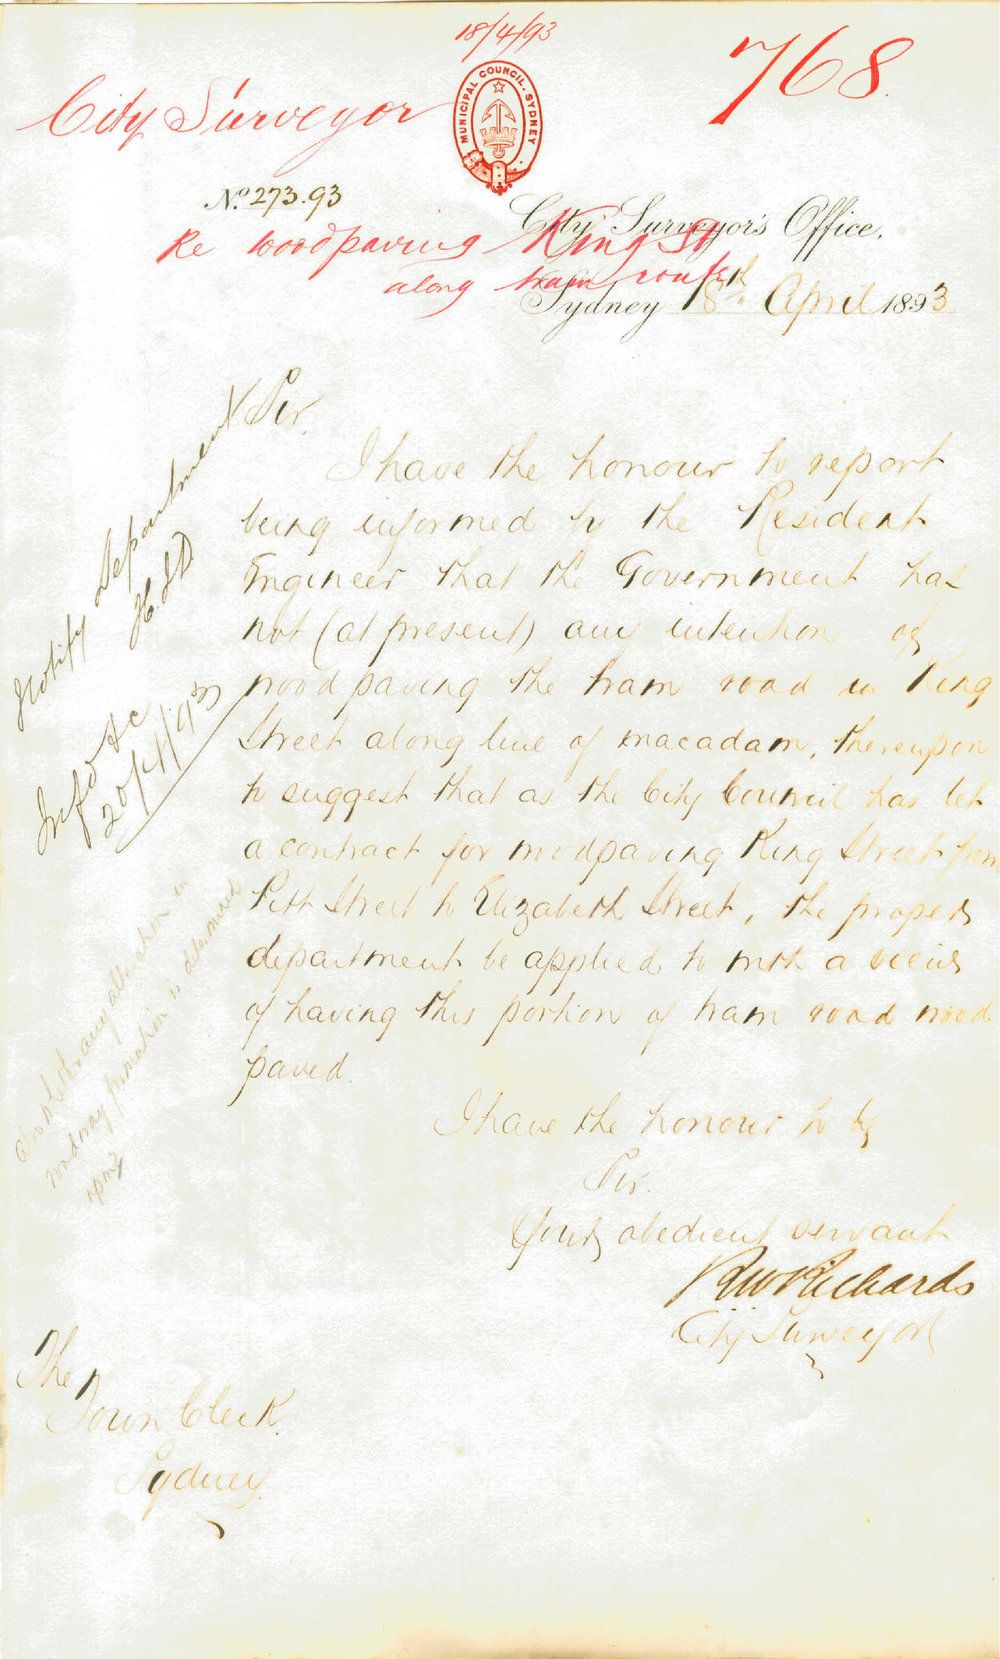 18/4/93
768.
City Surveyor
MUNICIPAL COUNCIL, SYDNEY
No. 273.93
City Surveyor's Office,
Re woodpaving King St
along tram route
Sydney 18th April 1893
Sir.
I have the honour to report
being informed by the Resident
Engineer that the Government has
not (at present) any intention of
wood paving the tram road in King
Street along line of macadam, thereupon
to suggest that as the City Council has let
a contract for woodpaving King Street from
Pitt Street to Elizabeth Street, the proper
department be applied to with a view
of having this portion of tram road wood
paved.
I have the honour to be
Sir.
Your obedient servant
RW Richards
City Surveyor
The
Town Clerk.
Sydney
Notify Department
H.J.D.
20/4/93
any alteration in
roadway formation is determined
upon